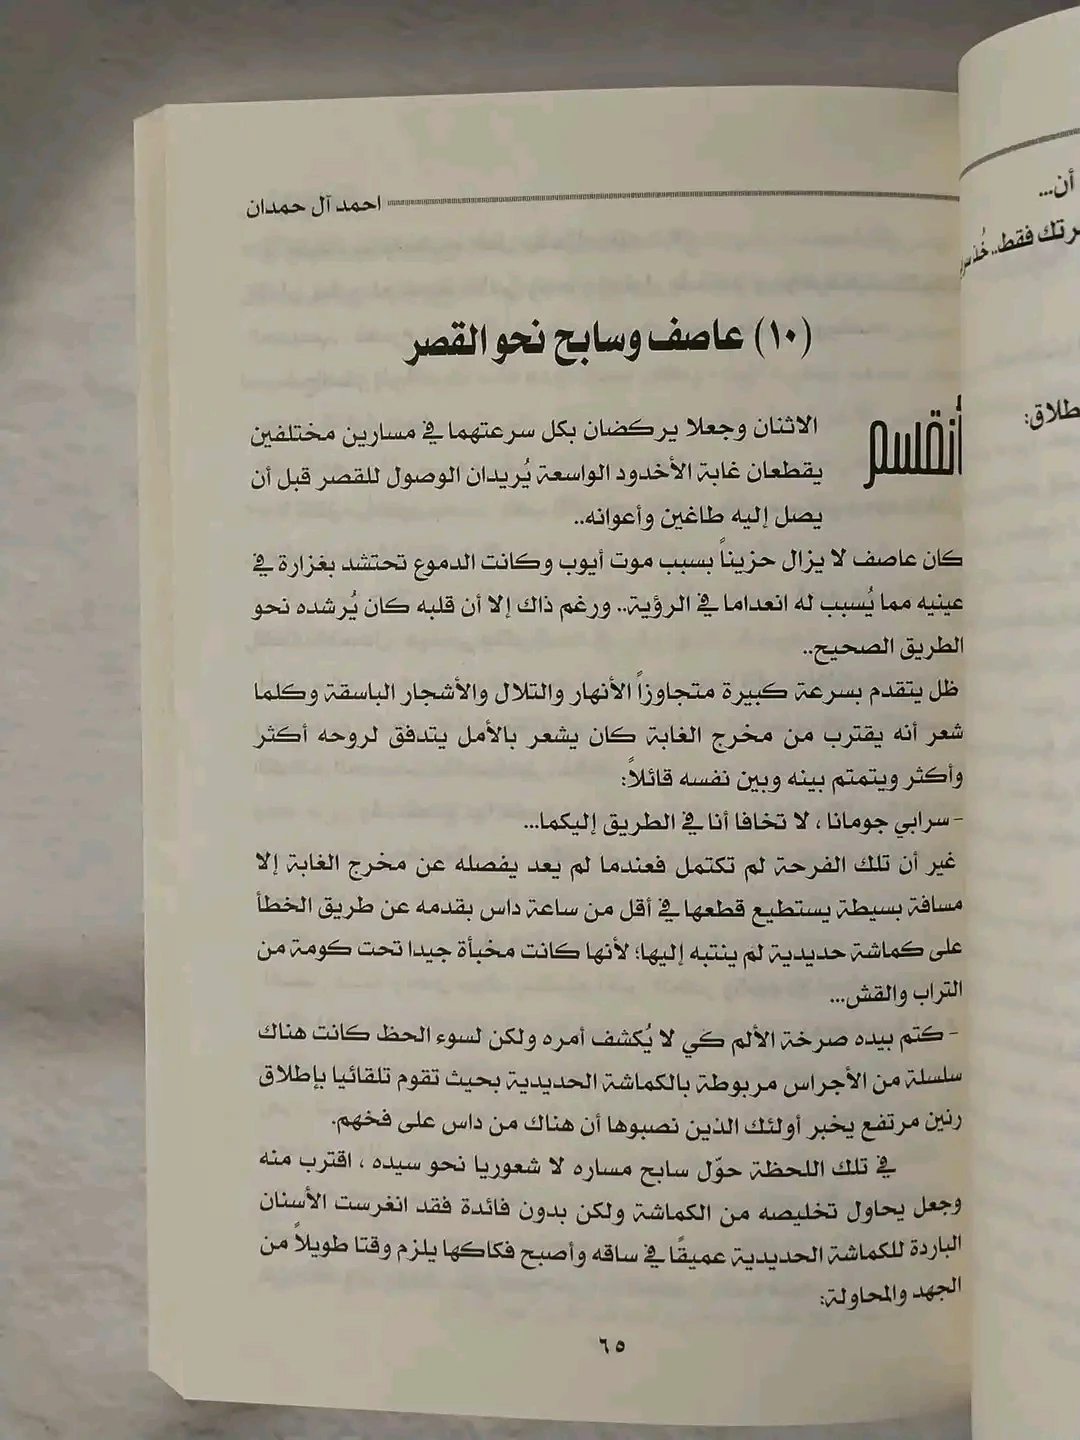 احمد آل حمدان
(١٠) عاصف وسابح نحو القصر
أنقسم الاثنان وجعلا يركضان بكل سرعتهما في مسارين مختلفين
يقطعان غابة الأخدود الواسعة يُريدان الوصول للقصر قبل أن
يصل إليه طاغين وأعوانه..
كان عاصف لا يزال حزيناً بسبب موت أيوب وكانت الدموع تحتشد بغزارة في
عينيه مما يُسبب له انعداما في الرؤية.. ورغم ذاك إلا أن قلبه كان يُرشده نحو
الطريق الصحيح..
ظل يتقدم بسرعة كبيرة متجاوزاً الأنهار والتلال والأشجار الباسقة وكلما
شعر أنه يقترب من مخرج الغابة كان يشعر بالأمل يتدفق لروحه أكثر
وأكثر ويتمتم بينه وبين نفسه قائلاً:
-سرابي جومانا ، لا تخافا أنا في الطريق إليكما...
غير أن تلك الفرحة لم تكتمل فعندما لم يعد يفصله عن مخرج الغابة إلا
مسافة بسيطة يستطيع قطعها في أقل من ساعة داس بقدمه عن طريق الخطأ
على كماشة حديدية لم ينتبه إليها؛ لأنها كانت مخبأة جيدا تحت كومة من
التراب والقش...
- كتم بيده صرخة الألم كي لا يُكشف أمره ولكن لسوء الحظ كانت هناك
سلسلة من الأجراس مربوطة بالكماشة الحديدية بحيث تقوم تلقائيا بإطلاق
رنين مرتفع يخبر أولئك الذين نصبوها أن هناك من داس على فخهم.
في تلك اللحظة حوّل سابح مساره لا شعوريا نحو سيده ، اقترب منه
وجعل يحاول تخليصه من الكماشة ولكن بدون فائدة فقد انغرست الأسنان
الباردة للكماشة الحديدية عميقًا في ساقه وأصبح فكاكها يلزم وقتا طويلاً من
الجهد والمحاولة:
٦٥
أن...
فقط.. خُذ